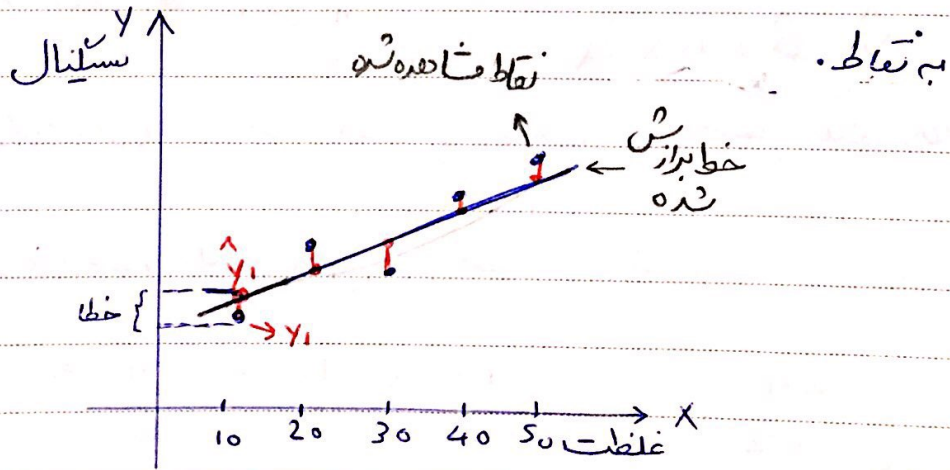 به نقاط.
Y
سیگنال
نقاط مشاهده شده
خط برازش
شده
ŷ₁
خطا
y₁
X
10 20 30 40 50
غلظت